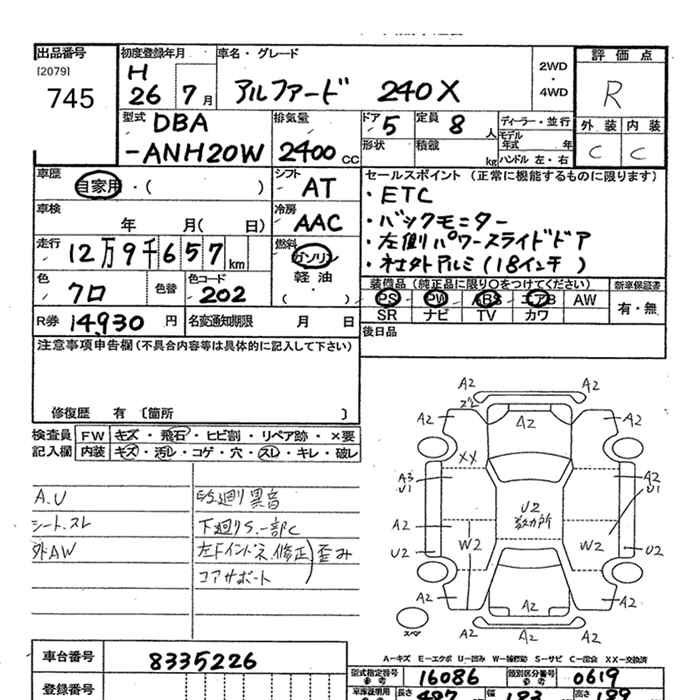 出品番号
[2079]
745
初度登録年月
H
26 7月
車名・グレード
アルファード 240X
2WD
・
4WD
評価点
R
外装 内装
C C
型式
DBA
-ANH20W
排気量
2400 CC
ドア 5
定員 8 人
ディーラー・並行
モデル年式 年
形状
積載 kg
ハンドル 左・右
車歴
自家用・( )
シフト
AT
セールスポイント (正常に機能するものに限ります)
・ETC
・バックモニター
・左側パワースライドドア
・社外アルミ(18インチ)
車検
年 月( 日)
冷房
AAC
走行
12万9千657km
燃料
ガソリン
軽油
・
( )
色
クロ
色替
色コード
202
装備品(純正品に限り○をつけてください)
新車保証書
PS PW ABS エアB AW
有・無
SR ナビ TV カワ
R券 14,930 円
名変通知期限 月 日
後日品
注意事項申告欄(不具合内容等は具体的に記入して下さい)
修復歴 有 〔箇所 〕
検査員
記入欄
FW キズ・飛石・ヒビ割・リペア跡・×要
内装 キズ・汚レ・コゲ・穴・スレ・キレ・破レ
A.U
シート.スレ
外AW
足廻り異音
下廻りS.一部C
左Fインドネ.修正
コアサポート
歪み
A2
A2
A2
A2
A2
XX
A3
U1
A2
U1
U2
数カ所
A2
W2
W2
U2
U2
A2
A2
A2
A2
スペア
A-キズ E-エクボ U-凹み W-補修跡 S-サビ C-腐食 XX-交換済
車台番号
8335226
型式指定番号
参考
16086
類別区分番号
参考
0619
登録番号
車庫証明用
長さ
幅
高さ